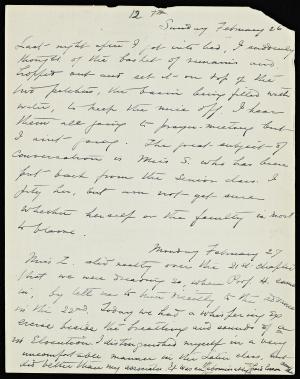 12 th
Sunday February 26
Last night after I got into bed, I suddenly
thought of the basket of remains and
hopped out and set it on top of the
two pitchers, the basin being filled with
water, to keep the mice off. I hear
them all going to prayer-meeting but
I ain't going. The great subject of
Conversation is Miss S. who has been
put back from the Senior class. I
pity her, but am not yet sure
whether herself or the faculty is most
to blame.
Monday February 27
Miss L. did recitly over the 21st chapter
that we were dreading so, when Prof. H. came
in, by let us to him recitly to the
in the 22nd. Today we had a whispering ex
ercise beside the breathing and sounds of a
in Elocution. I distinguished myself in a very
uncomfortable manner in the Latin class but
did better than my associates. It was